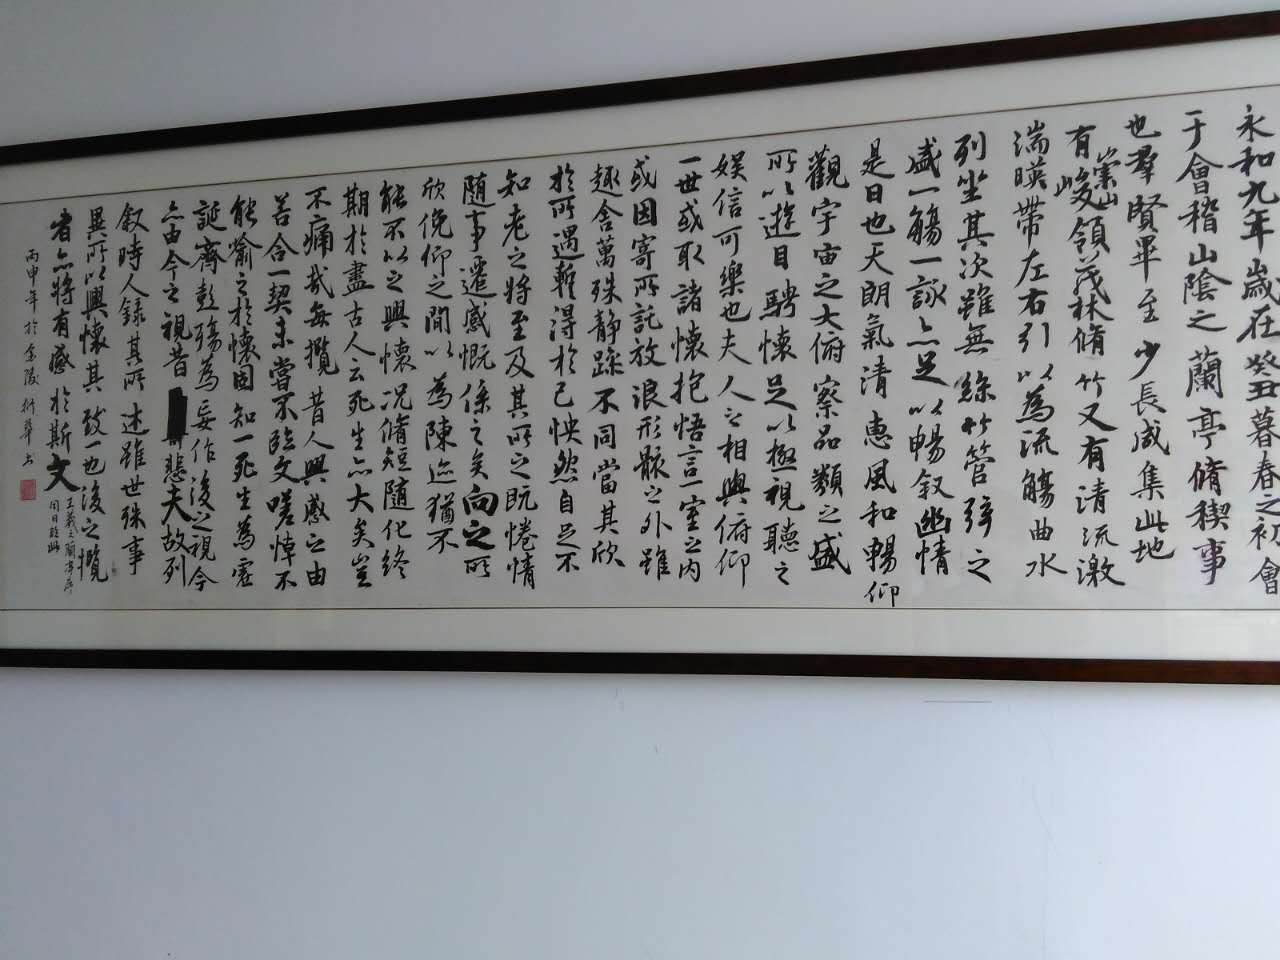 永和九年歲在癸丑暮春之初會
于會稽山陰之蘭亭脩稧事
也羣賢畢至少長咸集此地
有崇山峻領茂林脩竹又有清流激
湍暎帶左右引以為流觴曲水
列坐其次雖無絲竹管弦之
盛一觴一詠亦足以暢叙幽情
是日也天朗氣清惠風和暢仰
觀宇宙之大俯察品類之盛
所以遊目騁懷足以極視聽之
娛信可樂也夫人之相與俯仰
一世或取諸懷抱悟言一室之內
或因寄所託放浪形骸之外雖
趣舍萬殊静躁不同當其欣
於所遇暫得於己怏然自足不
知老之將至及其所之既惓情
隨事遷感慨係之矣向之所
欣俛仰之間以為陳迹猶不
能不以之興懷況脩短隨化終
期於盡古人云死生亦大矣豈
不痛哉每攬昔人興感之由
若合一契未嘗不臨文嗟悼不
能喻之於懷固知一死生為虛
誕齊彭殤為妄作後之視今
亦由今之視昔悲夫故列
叙時人錄其所述雖世殊事
異所以興懷其致一也後之攬
者亦將有感於斯文
王羲之蘭亭序
丙申年於金陵